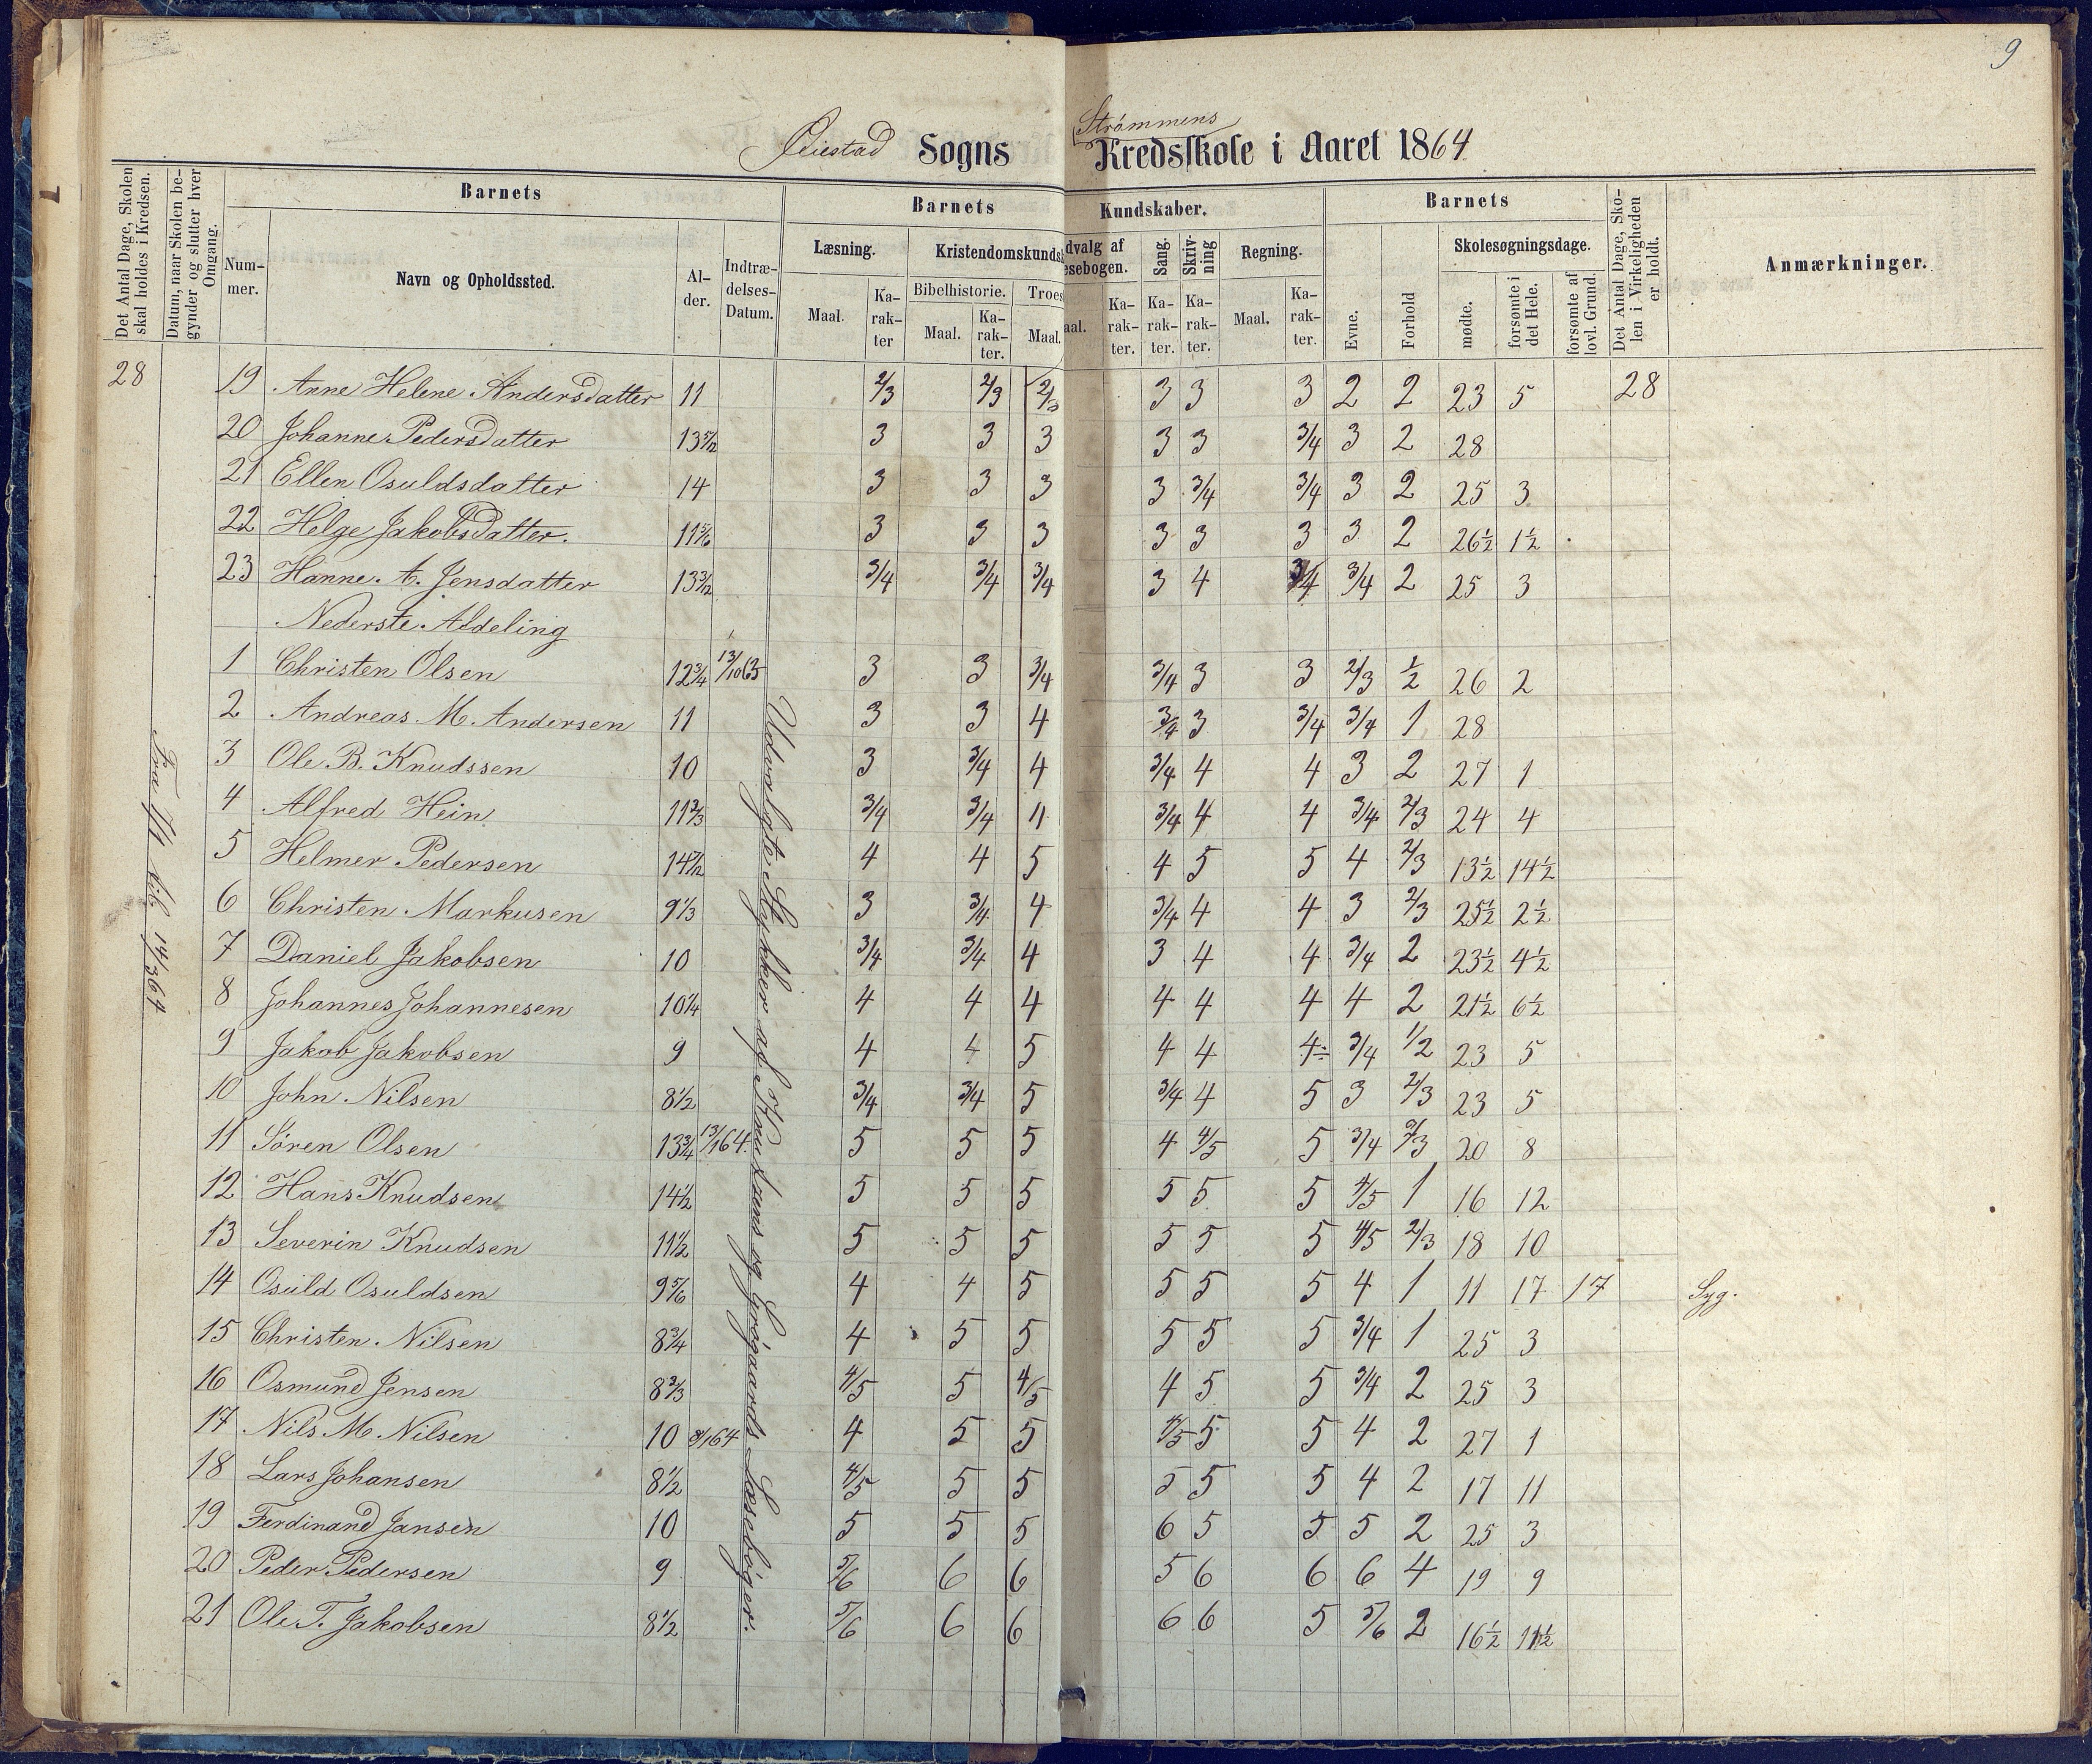 9
Øiestad Sogns Strømmens Kredsskole i Aaret 1864
Det Antal Dage, Skolen skal holdes i Kredsen.
Datum, naar Skolen begynder og slutter hver Omgang.
Barnets
Barnets
Kundskaber.
Barnets
Det Antal Dage, Skolen i Virkeligheden er holdt.
Anmærkninger.
Num-
mer.
Navn og Opholdssted.
Al-
der.
Indtræ-
delses-
Datum.
Læsning.
Kristendomskunds
dvalg af
esebogen.
Sang.
Skriv-
ning
Regning.
Evne.
Forhold
Skolesøgningsdage.
Maal.
Ka-
rak-
ter
Bibelhistorie.
Troes
Maal.
Ka-
rak-
ter.
Maal.
aal.
Ka-
rak-
ter.
Ka-
rak-
ter.
Ka-
rak-
ter.
Maal.
Ka-
rak-
ter.
mødte.
forsømte i det Hele.
forsømte af lovl. Grund
28 19 Anne Helene Andersdatter 11 2/3 2/3 2/3 3 3 3 2 2 23 5 28
20 Johanne Pedersdatter 13 5/12 3 3 3 3 3 3/4 3 2 28
21 Ellen Osuldsdatter 14 3 3 3 3 3/4 3/4 3 2 25 3
22 Helge Jakobsdatter. 11 5/6 3 3 3 3 3 3 3 2 26½ 1½
23 Hanne A. Jensdatter 13 3/12 3/4 3/4 3/4 3 4 3/4 3/4 2 25 3
Nederste Afdeling
1 Christen Olsen 12¾ 13/10 63 3 3 3/4 3/4 3 3 2/3 1/2 26 2
2 Andreas M. Andersen 11 3 3 4 3/4 3 3/4 3/4 1 28
3 Ole B. Knudssen 10 3 3/4 4 3/4 4 4 3 2 27 1
4 Alfred Hein 11 2/3 3/4 3/4 4 3/4 4 4 3/4 2/3 24 4
5 Helmer Pedersen 14 7/12 4 4 5 4 5 5 4 2/3 13½ 14½
6 Christen Markusen 9 1/3 3 3/4 4 3/4 4 4 3 2/3 25½ 2½
7 Daniel Jakobsen 10 3/4 3/4 4 3 4 4 3/4 2 23½ 4½
8 Johannes Johannesen 10¼ 4 4 4 4 4 4 4 2 21½ 6½
9 Jakob Jakobsen 9 4 4 5 4 4 4÷ 3/4 1/2 23 5
10 John Nilsen 8½ 3/4 3/4 5 3/4 4 5 3 2/3 23 5
11 Sören Olsen 13¾ 13/1 64. 5 5 5 4 4/5 5 3/4 2/3 20 8
12 Hans Knudsen 14½ 5 5 5 5 5 5 4/5 1 16 12
13 Severin Knudsen 11½ 5 5 5 5 5 5 4/5 2/3 18 10
14 Osuld Osuldsen 9 5/6 4 4 5 5 5 5 4 1 11 17 17 Syg.
15 Christen Nilsen 8¾ 4 5 5 5 5 5 3/4 1 25 3
16 Osmund Jensen 8 2/3 4/5 5 4/5 4 5 5 3/4 2 25 3
17 Nils M. Nilsen 10 8/1 64 4 5 5 4/5 5 5 4 2 27 1
18 Lars Johansen 8½ 4/5 5 5 5 5 5 4 2 17 11
19 Ferdinand Jansen 10 5 5 5 6 5 5 5 2 25 3
20 Peder Pedersen 9 5/6 6 6 5 6 6 6 4 19 9
21 Ole T. Jakobsen 8½ 5/6 6 6 6 6 5 5/6 2 16½ 11½
til 14/3 64
Udvalgte Stykker af Knudsens og Grøgaards Læsebøger.